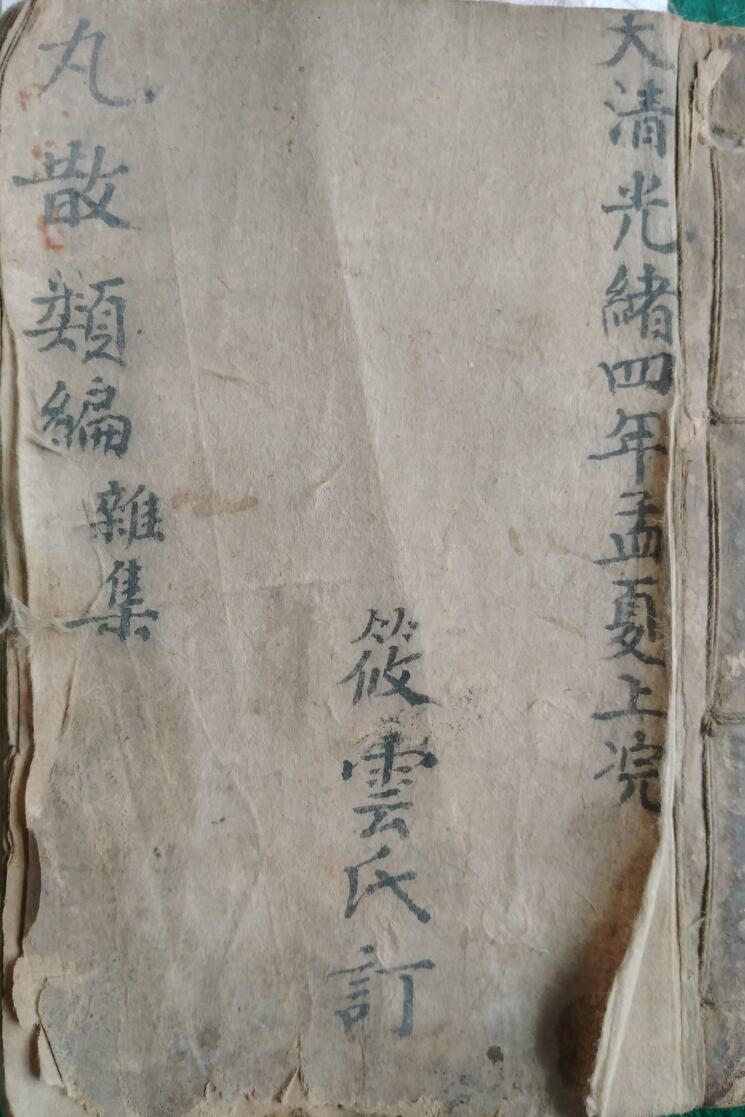 大清光緒四年孟夏上浣
筱雲氏訂
丸散類編
雜集